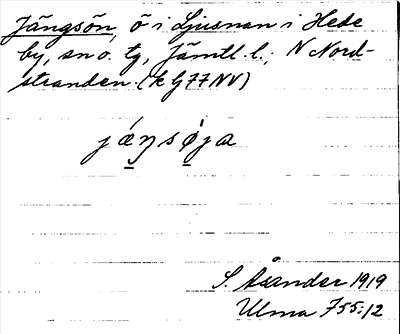 Jängsön, ö i Ljusnan i Hede
by, sn o. tg, Jämtl. l.; N Nord-
stranden. (k G77NV)
jǽŋsø̀ja
S. Åsander 1919
Ulma 755:12